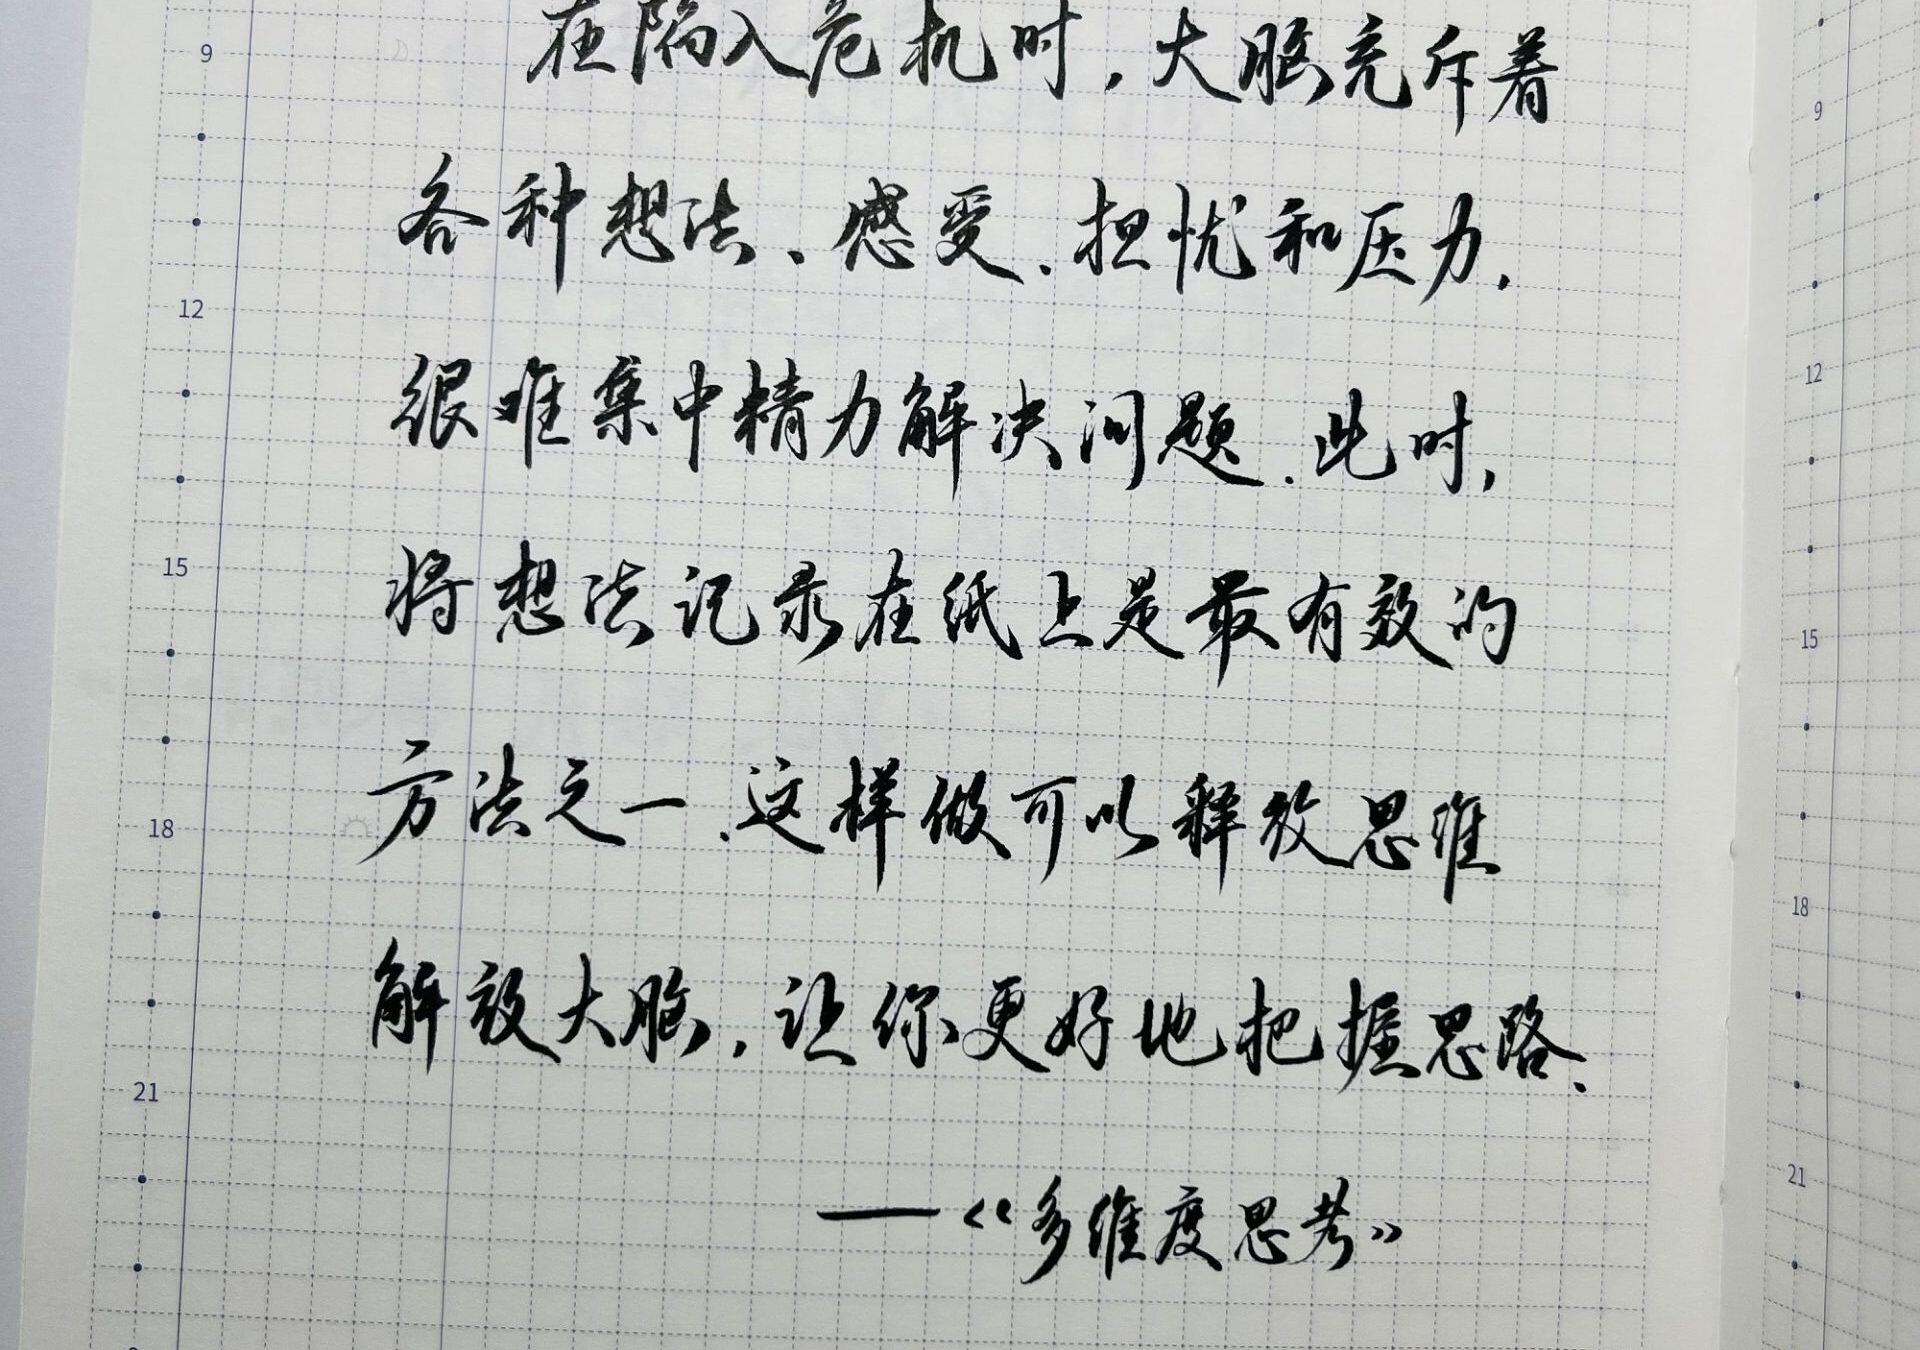 在陷入危机时,大脑充斥着
各种想法、感受、担忧和压力.
很难集中精力解决问题.此时,
将想法记录在纸上是最有效的
方法之一.这样做可以释放思维
解放大脑,让你更好地把握思路.
——《多维度思考》
9
12
15
18
21
9
12
15
18
21